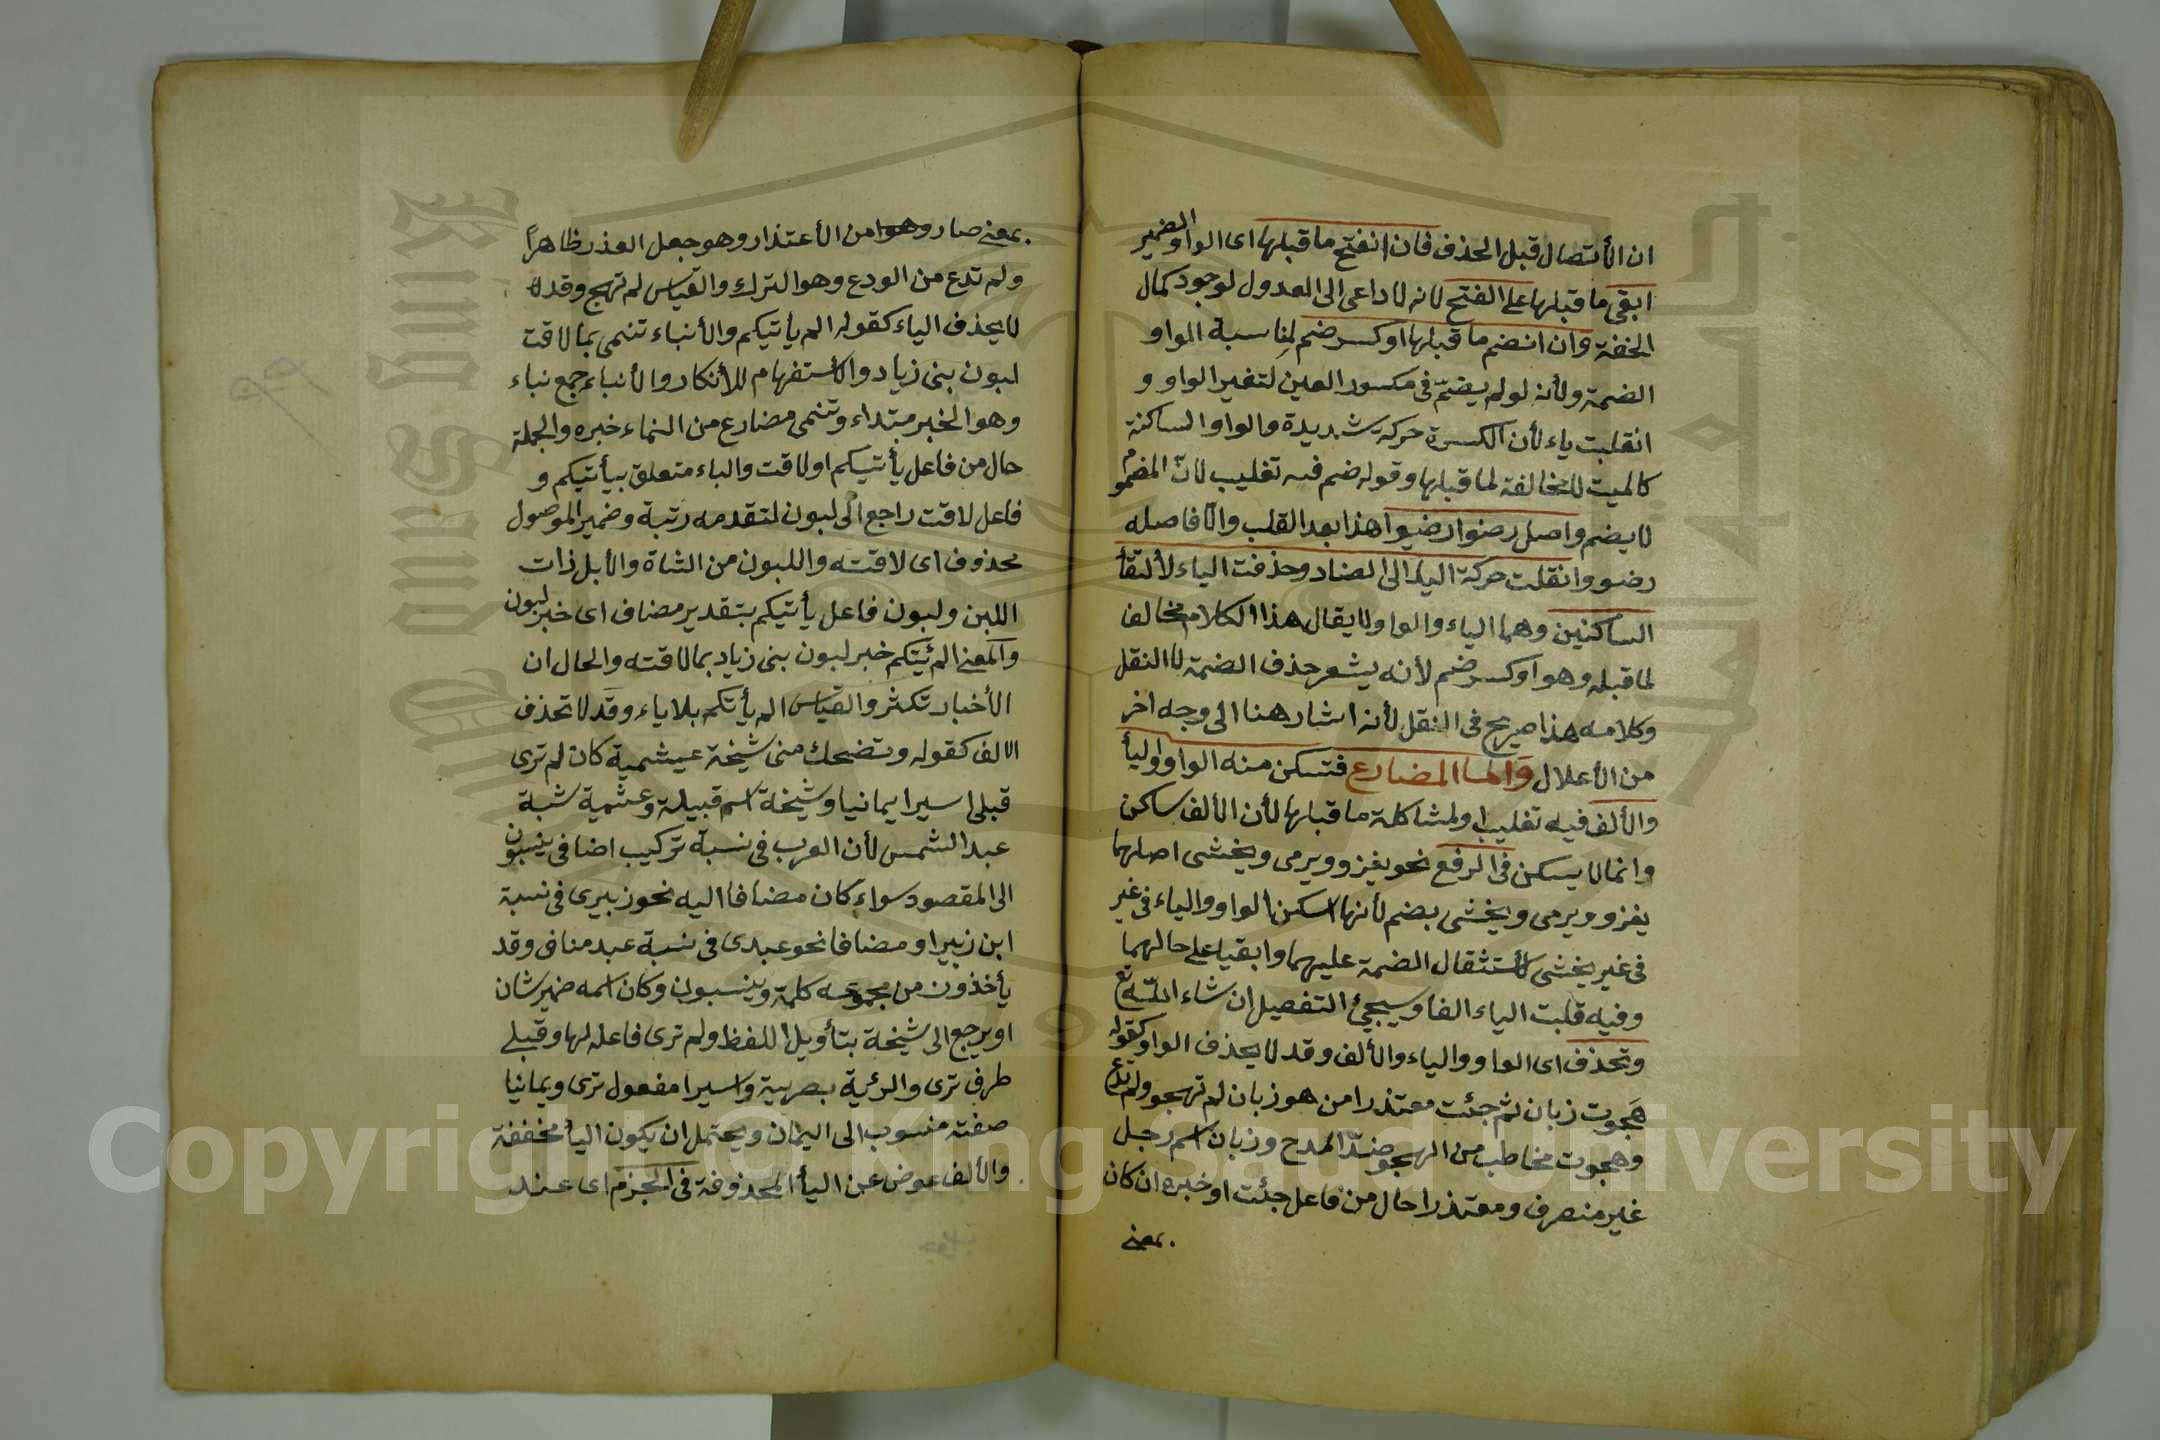 ان الأتصال قبل الحذف فان انفتح ما قبلها اى الواو الضمير
ابقى ما قبلها على الفتح لانه لا داعى الى العدول لوجود كمال
الخفة وان انضم ما قبلها او كسر ضم لمناسبة الواو
الضمة ولأنه لو لم يضمّ فى مكسور العين لتغير الواو و
انقلبت ياء لأن الكسرة حركة شديدة والواو الساكنة
كالميت للمخالفة لما قبلها وقوله ضم فيه تغليب لانّ المضموم
لا يضم واصل رضوا رضيوا هذا بعد القلب والّا فاصله
رضووا نقلت حركة الياء الى الضاد وحذفت الياء لألتقأ
الساكنين وهما الياء والواو ولا يقال هذا الكلام مخالف
لما قبله وهو او كسر ضم لأنه يشعر حذف الضمة لا النقل
وكلامه هذا صريح فى النقل لأنه اشار هنا الى وجه اخر
من الأعلال واما المضارع فتسكن منه الواو واليأ
والألف فيه تغليب او لمشاكلة ما قبلها لأن الألف ساكن
وانما لا يسكن فى الرفع نحو يغزو ويرمى ويخشى اصلهما
يغزو ويرمى ويخشى بضم لأنها اسكن الواو والياء فى غير
فى غير يخشى لأستثقال الضمة عليهما وابقيا على حالهما
وفيه قلبت الياء الفا وسيجئ التفصيل ان شاء اللّه تع
وتحذف اى الواو والياء والألف وقد لا يحذف الواو كقوله
هَجوت زبان ثم جئت معتذرا من هو زبان لم تهجو ولم تدع
وهجوت مخاطب من الهجو ضدّ المدح وزبان اسم رجل
غير منصرف ومعتذرا حال من فاعل جئت او خبره ان كان
بمعنى
بمعنى صار وهو من الأعتذار وهو جعل العذر ظاهراً
ولم تدع من الودع وهو الترك والقياس لم تهج وقد لا
لا يحذف الياء كقوله الم يأتيكم والأنباء تنمى بما لاقت
لبون بنى زياد والأستفهام للأنكار والأنباء جمع نباء
وهو الخبر مبتداء وتنمى مضارع من النماء خبره والجملة
حال من فاعل يأتيكم او لاقت والباء متعلق بيأتيكم و
فاعل لاقت راجع الى لبون لتقدمه رتبة وضمير الموصول
محذوف اى لاقته واللبون من الشاة والأبل ذات
اللبن ولبون فاعل يأتيكم بتقدير مضاف اى خبر لبون
والمعنى الم يئتكم خبر لبون بنى زياد بما لاقته والحال ان
الأخبار تكثر والقياس الم يأتكم بلا ياء وقد لا تحذف
الالف كقوله وتضحك منى شيخة عبشمية كان لم ترى
قبلى اسيرا يمانيا وشيخة اسم قبيلة وعشمية شبة
عبد الشمس لأن العرب فى نسبة تركيب اضافى ينسبون
الى المقصود سواء كان مضافا اليه نحو زبيرى فى نسبة
ابن زبير او مضافا نحو عبدى فى نسبة عبد مناف وقد
يأخذون من مجموعه كلمة وينسبون وكان اسمه ضمير شان
او يرجع الى شيخة بتأويل اللفظ ولم ترى فاعله لها وقبلى
ظرف ترى والرئية بصرية واسيرا مفعول ترى ويمانيا
صفته منسوب الى اليمان ويحتمل ان يكون اليأ مخففة
والألف عوض عن اليأ المحذوفة فى الجزم اى عند
٩٩
Copyright © King Saud University